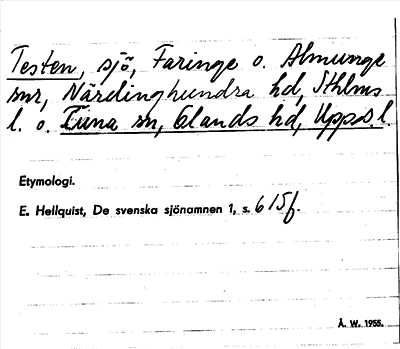 Testen, sjö, Faringe o. Almunge
snr, Närdinghundra hd, Sthlms
l. o. Tuna sn, Olands hd, Uppsa.l.
Etymologi.
E. Hellquist, De svenska sjönamnen 1, s. 615f.
Å. W. 1955.